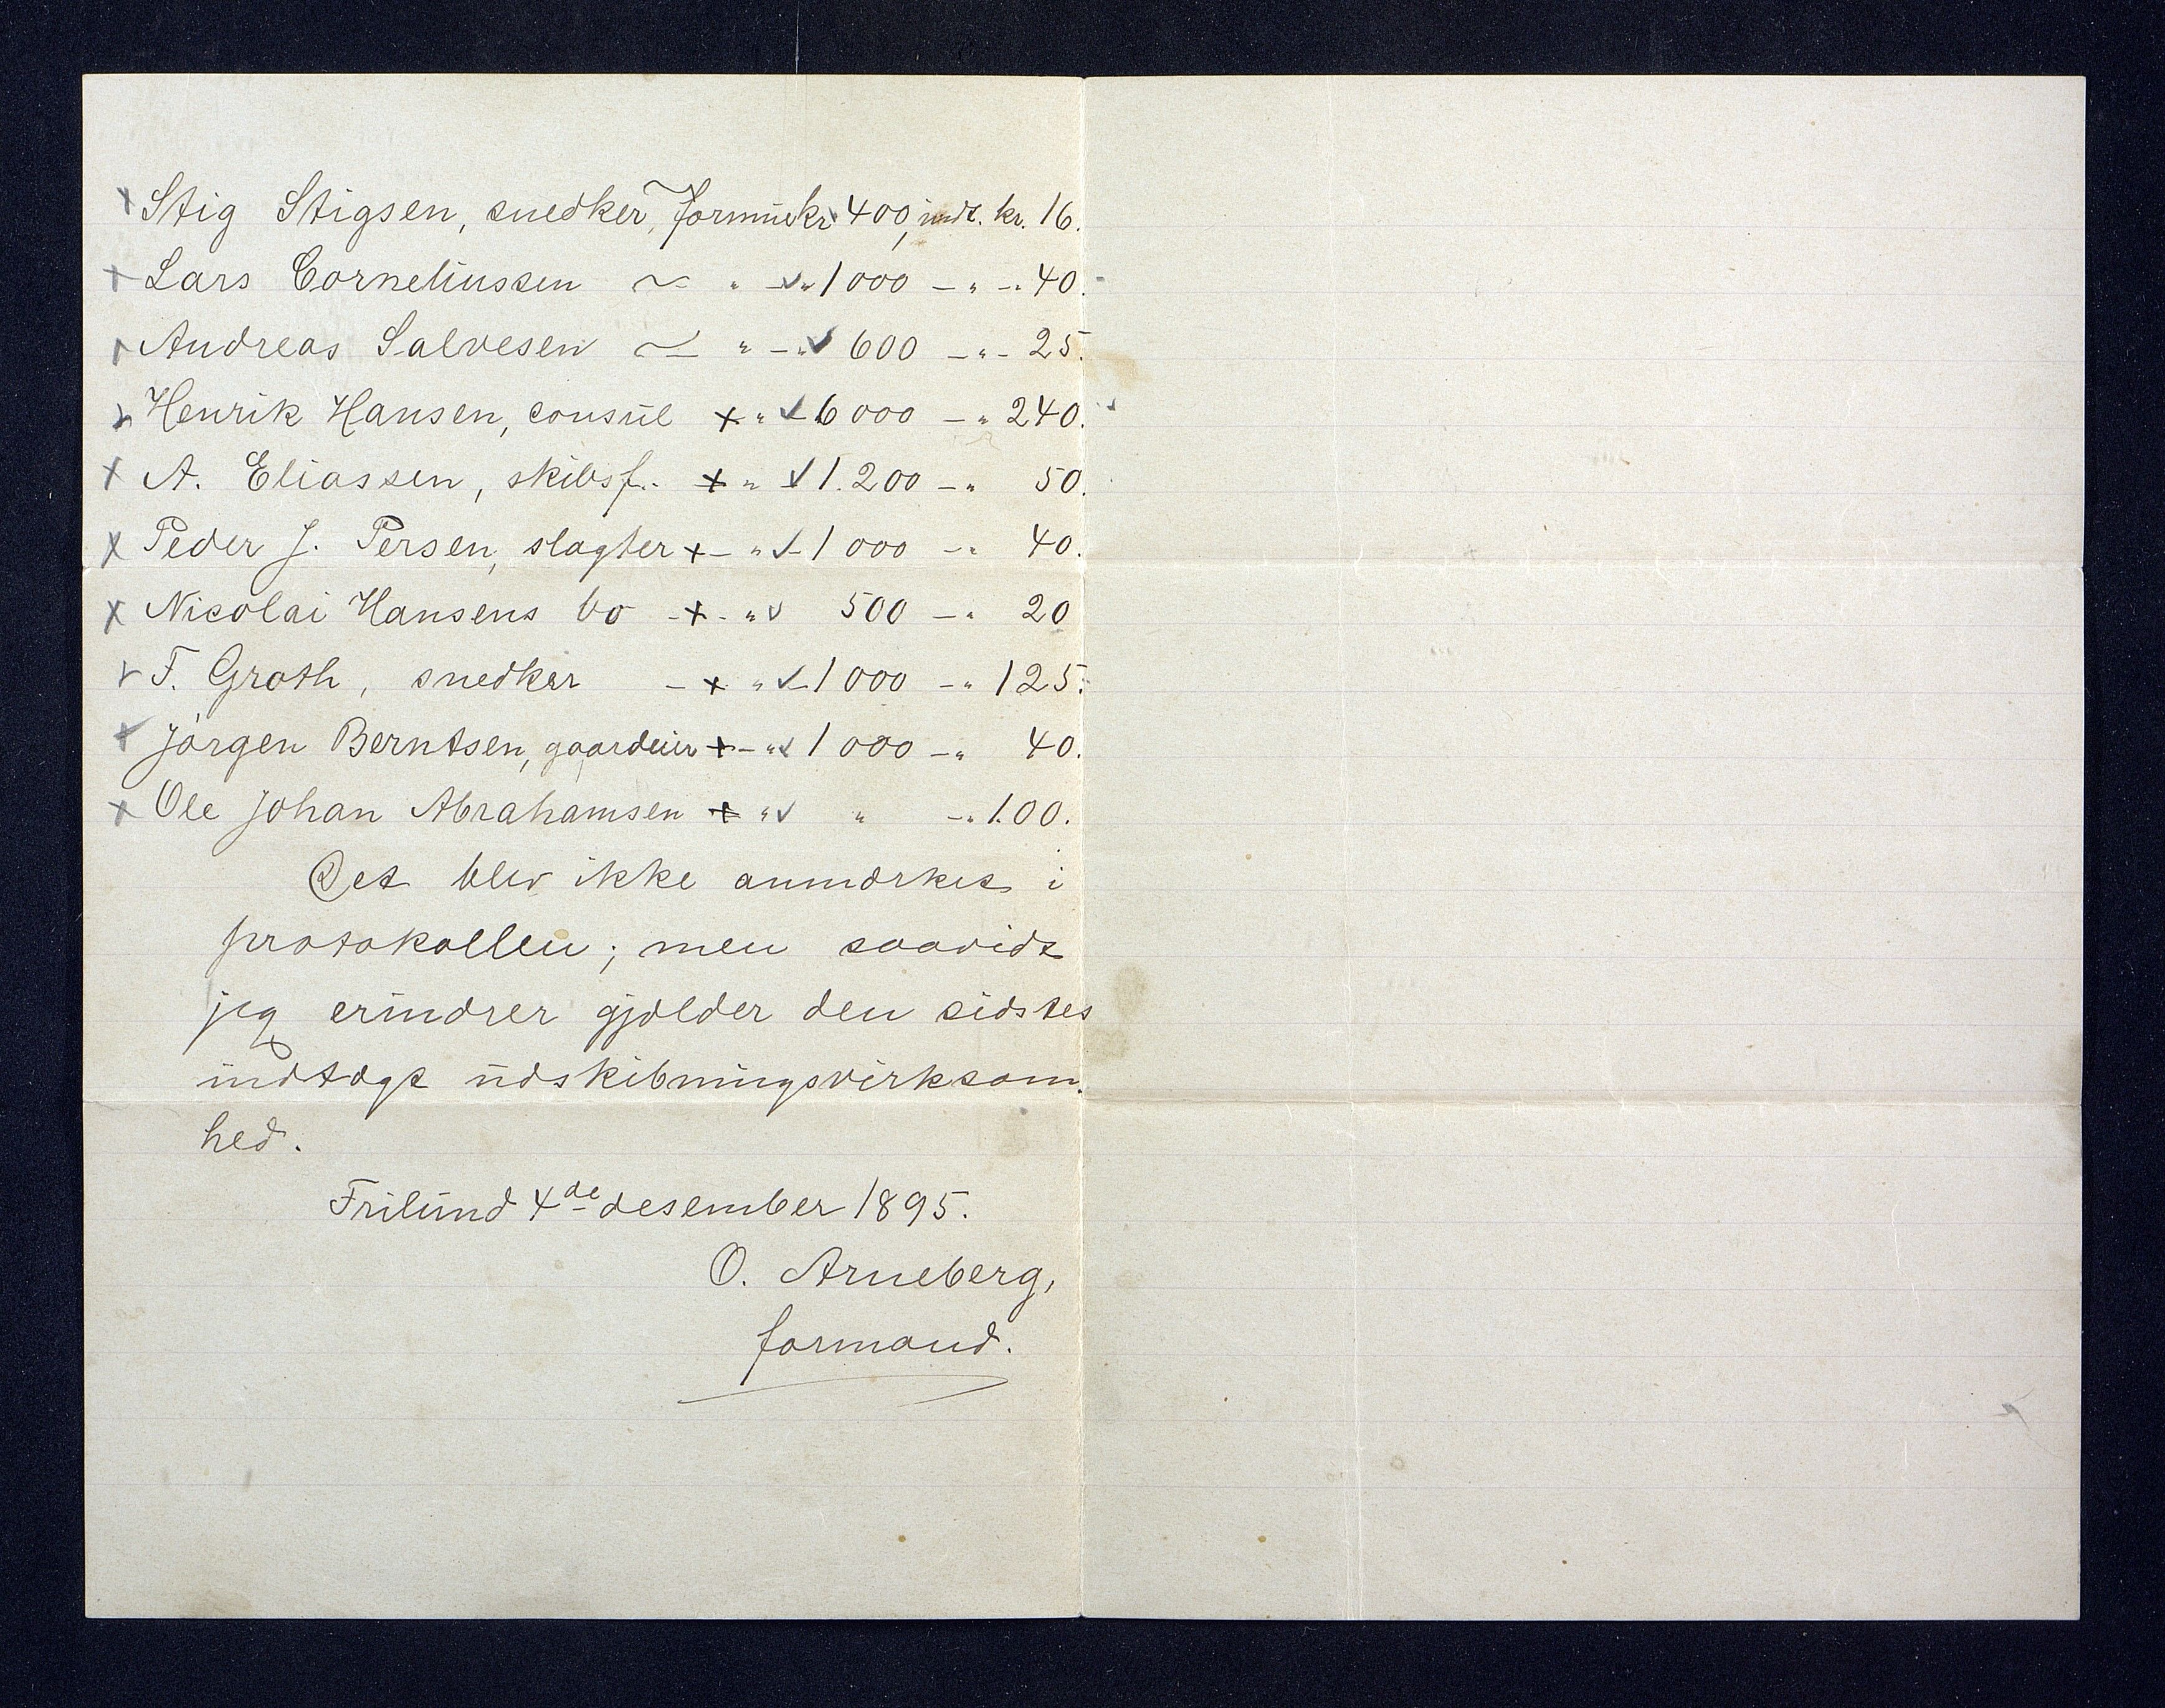 Stig Stigsen, snedker, formue kr 400, indt. kr. 16.
Lars Corneliussen ~ " - " 1000 - " - 40.
Andreas Salvesen ~ " - " 600 - " - 25.
Henrik Hansen, consul + " - 6000 - " 240.
A. Eliassen, skibsf. + " - 1.200 - " 50.
Peder J. Persen, slagter + - " - 1000 - " 40.
Nicolai Hansens bo - + - " 500 - " 20
F. Groth, snedker - + " - 1000 - " 125.
Jørgen Berntsen, gaardeier + - " 1000 - " 40.
Ole Johan Abrahamsen + " " - " 100.
Det blev ikke anmærket i
protokollen; men saavidt
jeg erindrer gjælder den sidstes
indtægt udskibningsvirksom-
hed.
Frilund 4de desember 1895.
O. Arneberg,
formand.